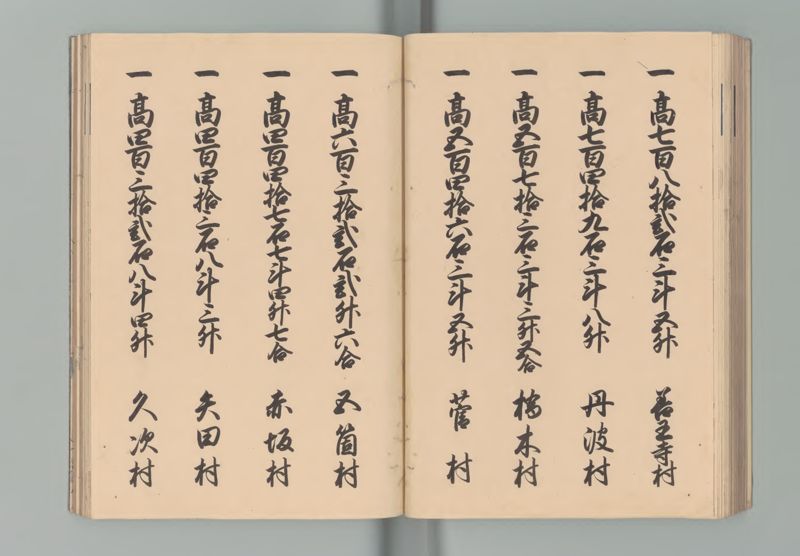 一 高七百八拾弐石三斗五升 善王寺村
一 高七百四拾九石三斗八升 丹波村
一 高五百七拾三石三斗三升五合 橋木村
一 高五百四拾六石三斗五升 菅村
一 高六百三拾弐石弐升六合 五箇村
一 高四百四拾七石七斗四升七合 赤坂村
一 高四百四拾三石八斗三升 矢田村
一 高四百三拾弐石八斗四升 久次村